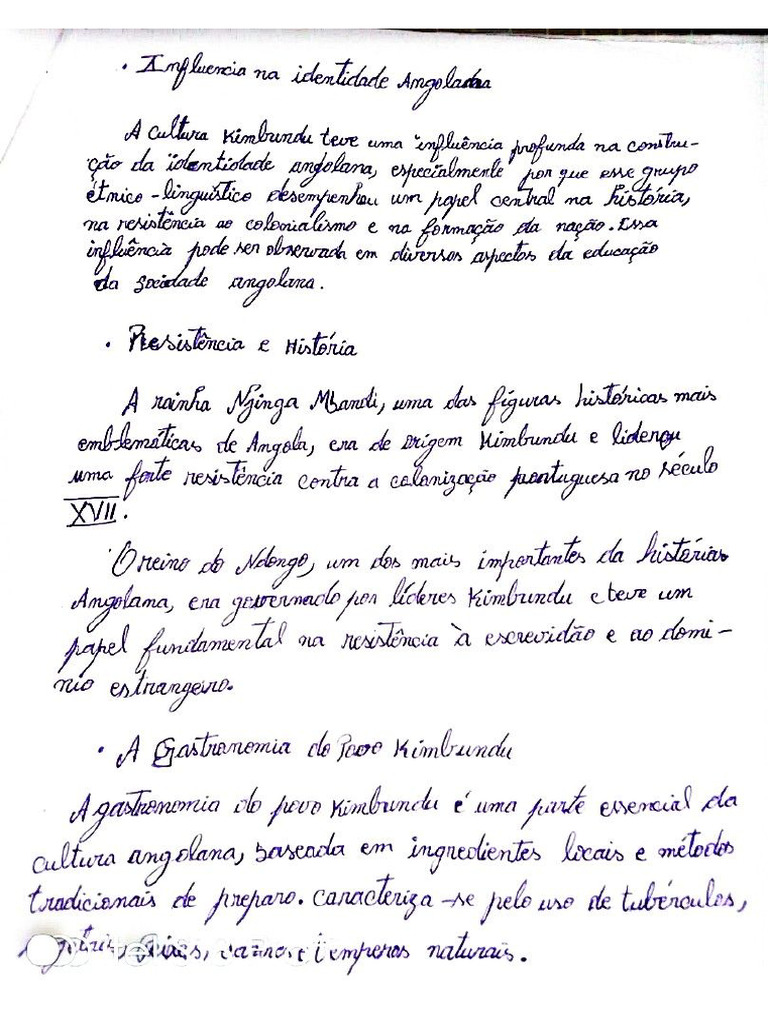 • Influencia na identidade Angolana
A cultura Kimbundu teve uma influência profunda na constru-
ção da identidade angolana, especialmente por que esse grupo
étnico-linguístico desempenhou um papel central na história,
na resistência ao colonialismo e na formação da nação. Essa
influência pode ser observada em diversos aspectos da educação
da sociedade angolana.
• Resistência e História
A rainha Njinga Mbandi, uma das figuras históricas mais
emblemáticas de Angola, era de origem Kimbundu e liderou
uma forte resistência contra a colonização portuguesa no século
XVII.
O reino do Ndongo, um dos mais importantes da história
Angolana, era governado por líderes Kimbundu e teve um
papel fundamental na resistência à escrevidão e ao domí-
nio estrangeiro.
• A Gastronomia do Povo Kimbundu
A gastronomia do povo Kimbundu é uma parte essencial da
cultura angolana, baseada em ingredientes locais e métodos
tradicionais de preparo. Caracteriza-se pelo uso de tubérculos,
e temperos naturais.